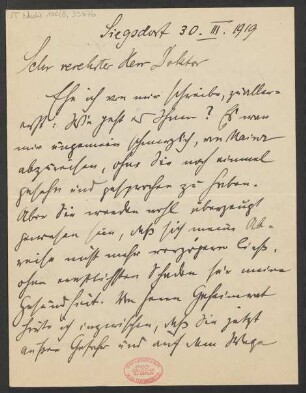 Siegsdorf 30. III. 1919
Sehr verehrter Herr Doktor
Ehe ich von mir schreibe, zualler-
erst: Wie geht es Ihnen? Es war
mir ungemein schmerzlich, von Mainz
abzureisen, ohne Sie noch einmal
gesehn und gesprochen zu haben.
Aber Sie werden wohl überzeugt
gewesen sein, daß sich meine Ab-
reise nicht mehr verzögern ließ,
ohne ernstlichsten Schaden für meine
Gesundheit. Von Herrn Geheimrat
hörte ich inzwischen, daß Sie jetzt
außer Gefahr und auf dem Wege